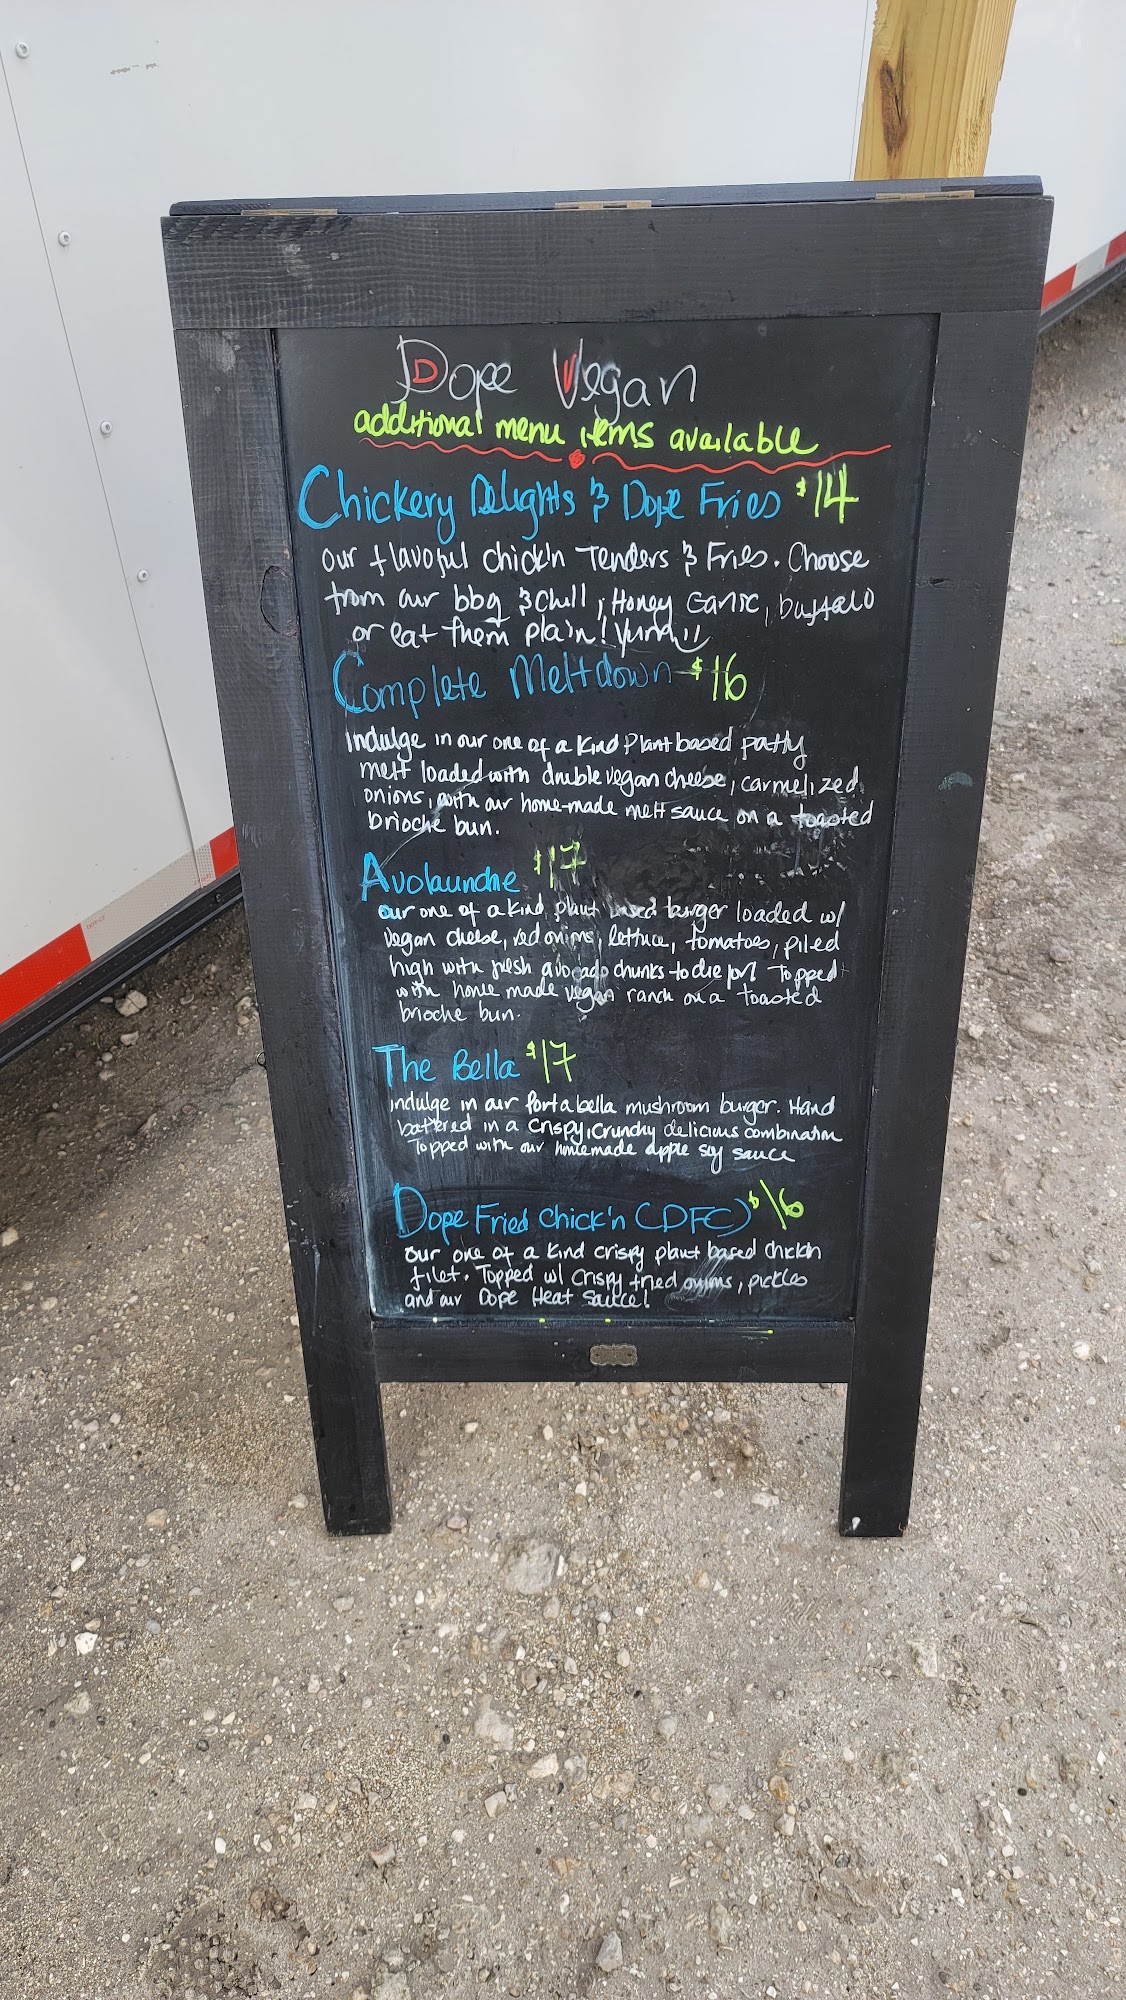 Dope Vegan
additional menu items available
Chickery Delights & Dope Fries $14
our flavoful chick'n Tenders & Fries. Choose
from our bbq & Chill, Honey Garlic, buffalo
or eat them plain! Yumm!!
Complete Meltdown $16
Indulge in our one of a kind Plant based patty
melt loaded with double vegan cheese, carmelized
onions, with our home-made melt sauce on a toasted
brioche bun.
Avolaunche $17
our one of a kind plant based burger loaded w/
vegan cheese, red onions, lettuce, tomatoes, piled
high with fresh avocado chunks to die for! Topped
with home made vegan ranch on a toasted
brioche bun.
The Bella $17
indulge in our Portabella mushroom burger. Hand
battered in a crispy, crunchy delicious combination
Topped with our homemade apple soy sauce
Dope Fried Chick'n (DFC) $16
our one of a kind crispy plant based chickn
filet. Topped w/ crispy fried onions, pickles
and our Dope Heat Sauce!